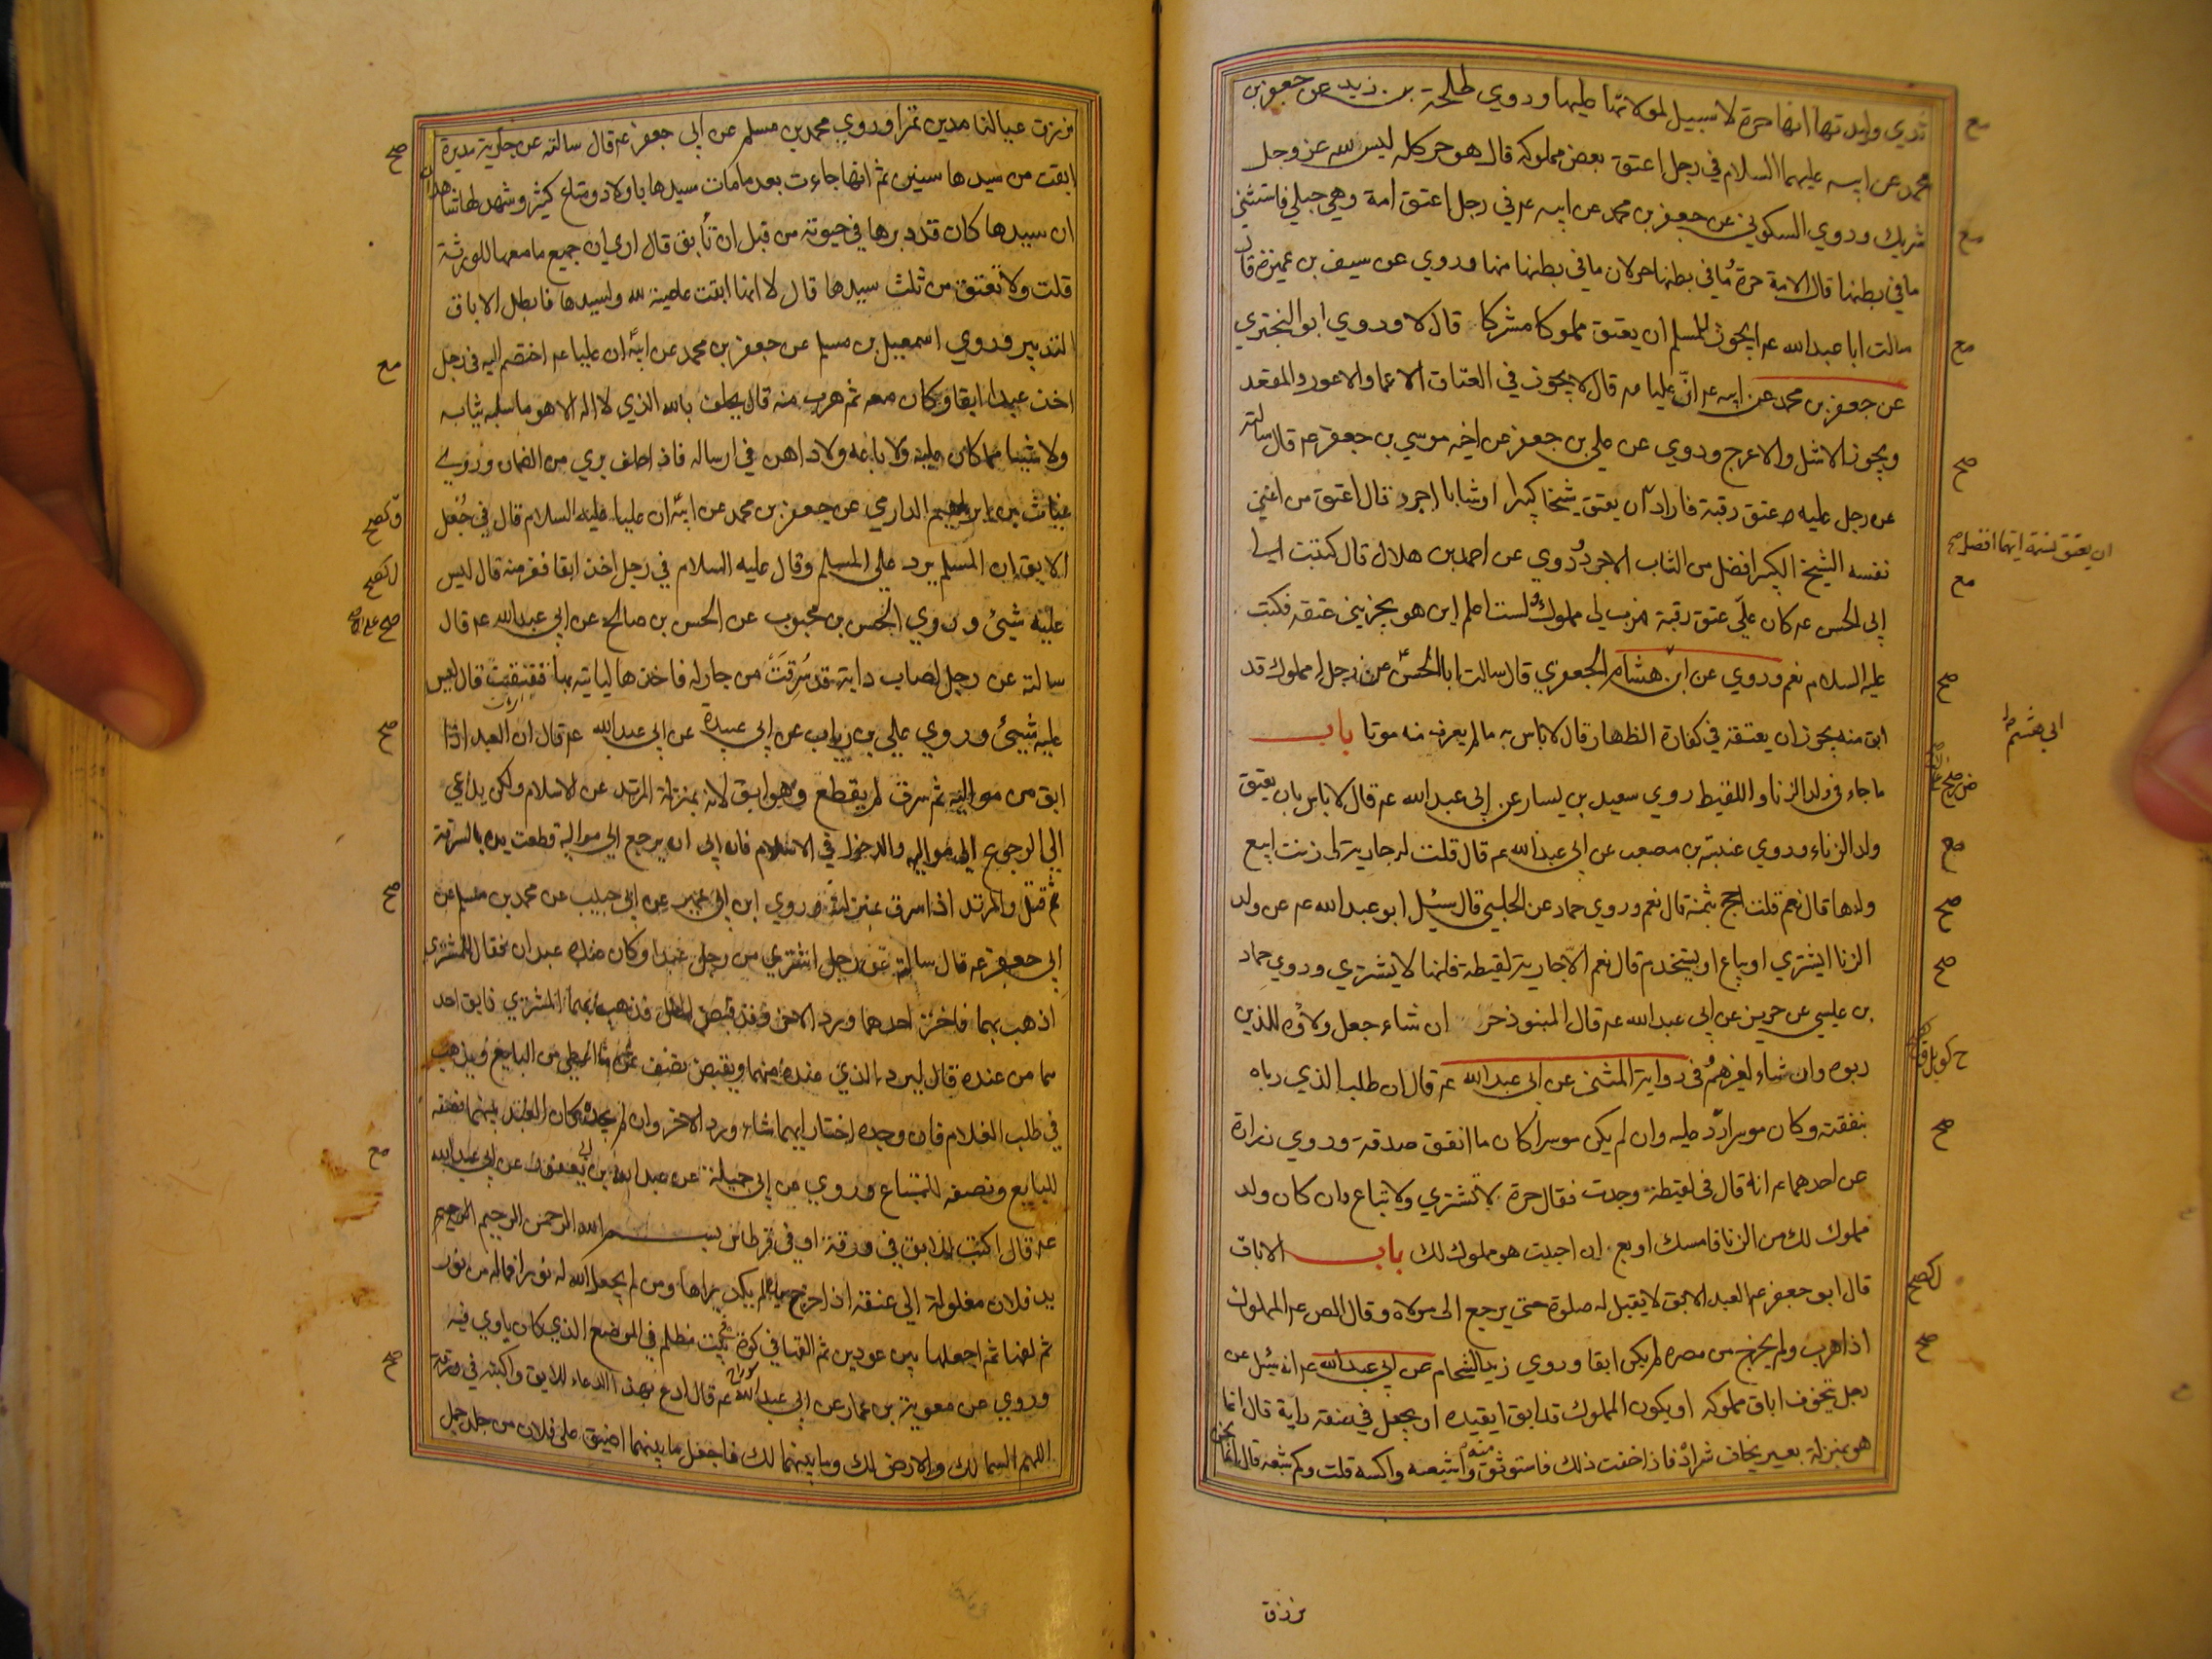 تدي وليدتها انها حرة لا سبيل لمولاتها عليها وروي طلحة بن زيد عن جعفر بن
محمد عن ابيه عليهما السلام في رجل اعتق بعض مملوكه قال هو حر كله ليس لله عز وجل
شريك وروي السكوني عن جعفر بن محمد عن ابيه عم في رجل اعتق امة وهي حبلي فاستثني
ما في بطنها قال الامة حرة وما في بطنها حر لان ما في بطنها منها وروي عن سيف بن عميرة قال
سالت ابا عبد الله عم ايجوز للمسلم ان يعتق مملوكا مشركا قال لا وروي ابو البختري
عن جعفر بن محمد عن ابيه عم ان عليا عم قال لا يجوز في العتاق الاعما والاعور والمقعد
ويجوز الاشل والاعرج وروي عن علي بن جعفر عن اخيه موسي بن جعفر عم قال سالته
عن رجل عليه عتق رقبة فاراد ان يعتق شيخا كبيرا او شابا اجرد قال اعتق من اغني
نفسه الشيخ الكبير افضل من الشاب الاجرد وروي عن احمد بن هلال قال كتبت
الي ابي الحسن عم كان علي عتق رقبة فهرب لي مملوك لست اعلم اين هو يجزيني عتقه فكتب
عليه السلام نعم وروي عن ابي هشام الجعفري قال سالت ابا الحسن عم عن رجل مملوك قد
ابق منه يجوز ان يعتقه في كفارة الظهار قال لا باس به ما لم يعرف منه موتا باب
ما جاء في ولد الزنا واللقيط روي سعيد بن يسار عن ابي عبد الله عم قال لا باس بان يعتق
ولد الزناء وروي عنبة بن مصعب عن ابي عبد الله عم قال قلت له جارية لي زنت ابيع
ولدها قال نعم قلت احج بثمنه قال نعم وروي حماد عن الحلبي قال سئيل ابو عبد الله عم عن ولد
الزنا ايشتري او يباع او يستخدم قال نعم الا جارية لقيطة فانها لا يشتري وروي حماد
بن عيسي عن حريز عن ابي عبد الله عم قال المنبوذ حر ان شاء جعل ولاؤه للذين
ربوه وان شاء لغيرهم وفي رواية المثني عن ابي عبد الله عم قال ان طلب الذي رباه
بنفقته وكان موسرا رد عليه وان لم يكن موسرا كان ما انفق صدقة وروي زرارة
عن احدهما عم انه قال في لقيطة وجدت فقال حرة لا تشتري ولا تباع وان كان ولد
مملوك لك من الزنا فامسك او بع ان احببت هو مملوك لك باب الاباق
قال ابو جعفر عم العبد الابق لا يقبل له صلوة حتي يرجع الي مولاه وقال الص عم المملوك
اذا هرب ولم يخرج من مصره لم يكن ابقا وروي زيد الشحام عن ابي عبد الله عم انه سئيل عن
رجل يتخوف اباق مملوكه او يكون المملوك قد ابق ايقيده او يجعل في عنقه راية قال انما
هو بمنزلة بعير يخاف شراده فاذا خفت ذلك فاستوثق منه واشبعه واكسه قلت وكم شبعه قال انا نحن
نرزق
ان يعتق نسمة ايهما افضل صح
ابي هشيم ظ
نرزق عيالنا مدين تمرا وروي محمد بن مسلم عن ابي جعفر عم قال سالته عن جارية مدبرة
ابقت من سيدها سنين ثم انها جاءت بعد ما مات سيدها باولاد ومتاع كثير وشهد لها شاهدان
ان سيدها كان قد دبرها في حيوته من قبل ان تابق قال اري ان جميع ما معها للورثة
قلت ولا تعتق من ثلث سيدها قال لا انها ابقت عاصية لله ولسيدها فابطل الاباق
التدبير وروي اسمعيل بن مسلم عن جعفر بن محمد عن ابيه ان عليا عم اختصم اليه في رجل
اخذ عبدا ابقا وكان معه ثم هرب منه قال يحلف بالله الذي لا اله الا هو ما سلبه ثيابه
ولا شيئا مما كان عليه ولا باعه ولا داهن في ارساله فاذا حلف بري من الضمان وروي
غياث بن ابراهيم الدارمي عن جعفر بن محمد عن ابيه ان عليا عليه السلام قال في جعل
الابق ان المسلم يرد علي المسلم وقال عليه السلام في رجل اخذ ابقا ففر منه قال ليس
عليه شيئ وروي الحسن بن محبوب عن الحسن بن صالح عن ابي عبد الله عم قال
سالته عن رجل اصاب دابة قد سرقت من جار له فاخذها لياتيه بها فنفقت قال ليس
عليه شيئ وروي علي بن رياب عن ابي عبيدة عن ابي عبد الله عم قال ان العبد اذا
ابق من مواليه ثم سرق لم يقطع وهو ابق لانه بمنزلة المرتد عن الاسلام ولكن يدعي
الي الرجوع الي مواليه والدخول في الاسلام فان ابي ان يرجع الي مواليه قطعت يده بالسرقة
ثم قتل والمرتد اذا سرق بمنزلته وروي ابن ابي عمير عن ابي حبيب عن محمد بن مسلم عن
ابي جعفر عم قال سالته عن رجل اشتري من رجل عبدا وكان عنده عبدان فقال للمشتري
اذهب بهما فاختر احدهما ورد الاخر وقد قبض المال فذهب بهما المشتري فابق احد
هما من عنده قال ليرد الذي عنده منهما ويقبض نصف ثمن ما اعطي من البايع ويذهب
في طلب الغلام فان وجده اختار ايهما شاء ورد الاخر وان لم يجده كان العبد بينهما نصفه
للبايع ونصفه للمبتاع وروي عن ابي جميلة عن عبد الله بن ابي يعفور عن ابي عبد الله
عم قال اكتب للابق في ورقة او في قرطاس بسم الله الرحمن الرحيم
يد فلان مغلولة الي عنقه اذا اخرج يده لم يكد يراها ومن لم يجعل الله له نورا فما له من نور
ثم لفها ثم اجعلها بين عودين ثم القها في كوة بيت مظلم في الموضع الذي كان ياوي فيه
وروي عن معوية بن عمار عن ابي عبد الله عم قال ادع بهذا الدعاء للابق واكتبه في ورقة
اللهم السما لك والارض لك وما بينهما لك فاجعل ما بينهما اضيق علي فلان من جلد جمل